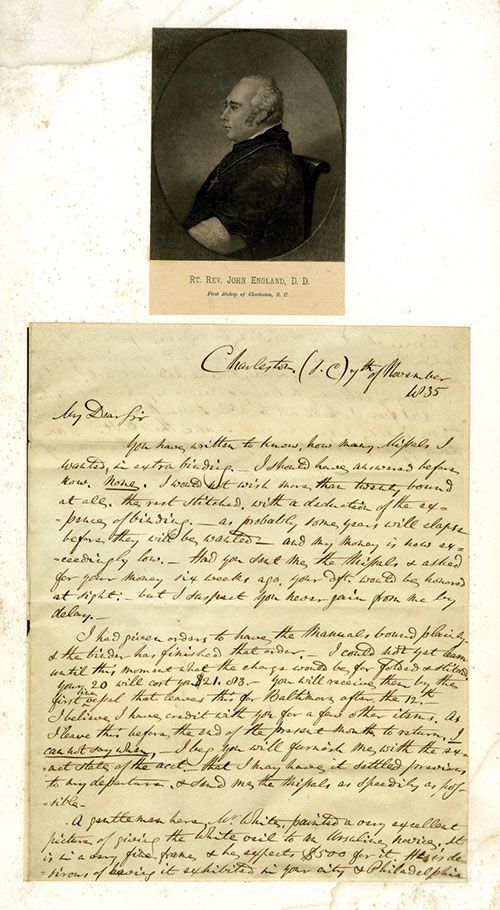 RT. REV. JOHN ENGLAND, D. D.
First Bishop of Charleston, S. C.
Charleston (S. C) 7th of November
1835
My Dear Sir
You have written to know, how many Missals I
wanted, in extra binding. – I should have answered before
now. None. I would not wish more than twenty bound
at all. the rest stitched, with a deduction of the ex-
-pence of binding. – as probably some years will elapse
before they will be wanted – and my money is now ex-
-ceedingly low. – Had you sent me the Missals & asked
for your money six weeks ago, your Dft would be honored
at sight. – but I suspect you never gain from me by
delay. –
I had given orders to have the Manuals bound plainly
& the binder has finished that order. – I could not yet learn
until this moment what the charge would be for folded & stitched
Your 20 will cost you $21.83. – You will receive them by the
first vessel that leaves this for Baltimore after the 12th –
I believe I have credit with you for a few other items. As
I leave this before the end of the present month to return, I
can not say when, – I beg you will furnish me with the ex-
-act state of the acct – that I may have it settled previous
to my departure & send me the Missals as speedily as pos-
-sible –
A gentleman here, Mr White, painted a very excellent
picture of giving the White veil to an Ursuline novice, It
is in a very fine frame, & he expects $500 for it. He is de
sirous of having it exhibited in your city & Philadelphia